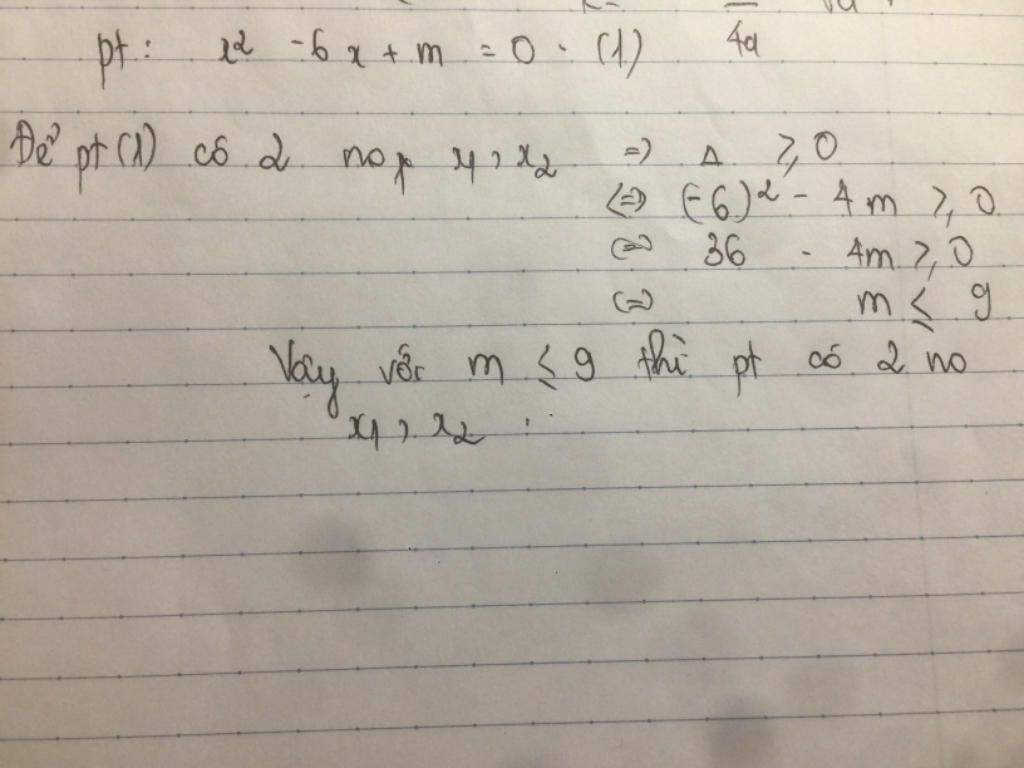 pt: x² - 6x + m = 0 . (1)
4a
Để pt (1) có 2 no x₁, x₂ => Δ ≥ 0
<=> (-6)² - 4m ≥ 0
<=> 36 - 4m ≥ 0
<=> m ≤ 9
Vậy với m ≤ 9 thì pt có 2 no
x₁, x₂ .